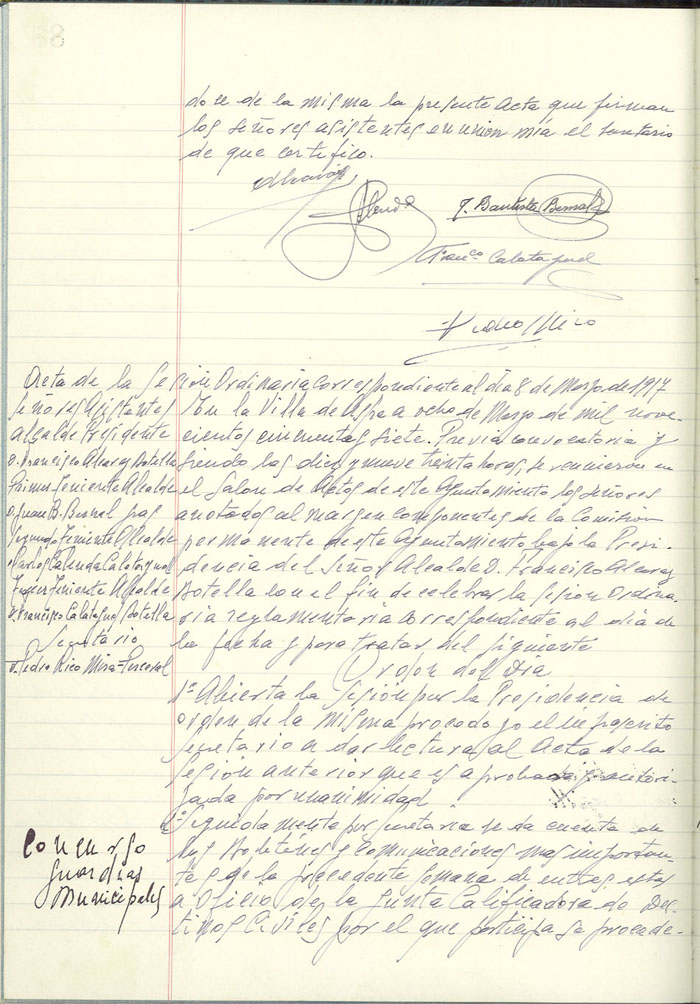 dose de la misma la presente acta que firman
los señores asistentes en union mia el secretario
de que certifico.
J. Bautista Bernal
Franco Calatayud
Pedro Rico
Acta de la Sesión Ordinaria correspondiente al dia 8 de Marzo de 1957
Señores Asistentes
Alcalde Presidente
D. Francisco Alcaraz Botella
Primer Teniente Alcalde
D. Juan B. Bernal
Segundo Teniente Alcalde
Carlos Calenda Calatayud
Tercer Teniente Alcalde
D. Francisco Calatayud Botella
Secretario
D. Pedro Rico Mira-Perceval
En la Villa de Aspe a ocho de Marzo de mil nove-
cientos cincuenta y siete. Previa convocatoria y
siendo las diez y nueve treinta horas, se reunieron en
el Salon de Actos de este Ayuntamiento los señores
anotados al margen componentes de la Comisión
permanente de este Ayuntamiento bajo la Presi-
dencia del Señor Alcalde D. Francisco Alcaraz
Botella con el fin de celebrar la sesión Ordina-
ria reglamentaria correspondiente al dia de
la fecha y para tratar del siguiente
Orden del Dia
1º Abierta la Sesión por la Presidencia de
orden de la misma procedo yo el infrascrito
secretario a dar lectura al Acta de la
sesión anterior que es aprobada y autori-
zada por unanimidad
Concurso
Guardias
Municipales
2º Seguidamente por secretaria se da cuenta de
los Boletines y comunicaciones mas importan-
tes de la precedente semana de entre estas
a Oficio de la Junta Calificadora de Des-
tinos Civiles por el que participa se procede-